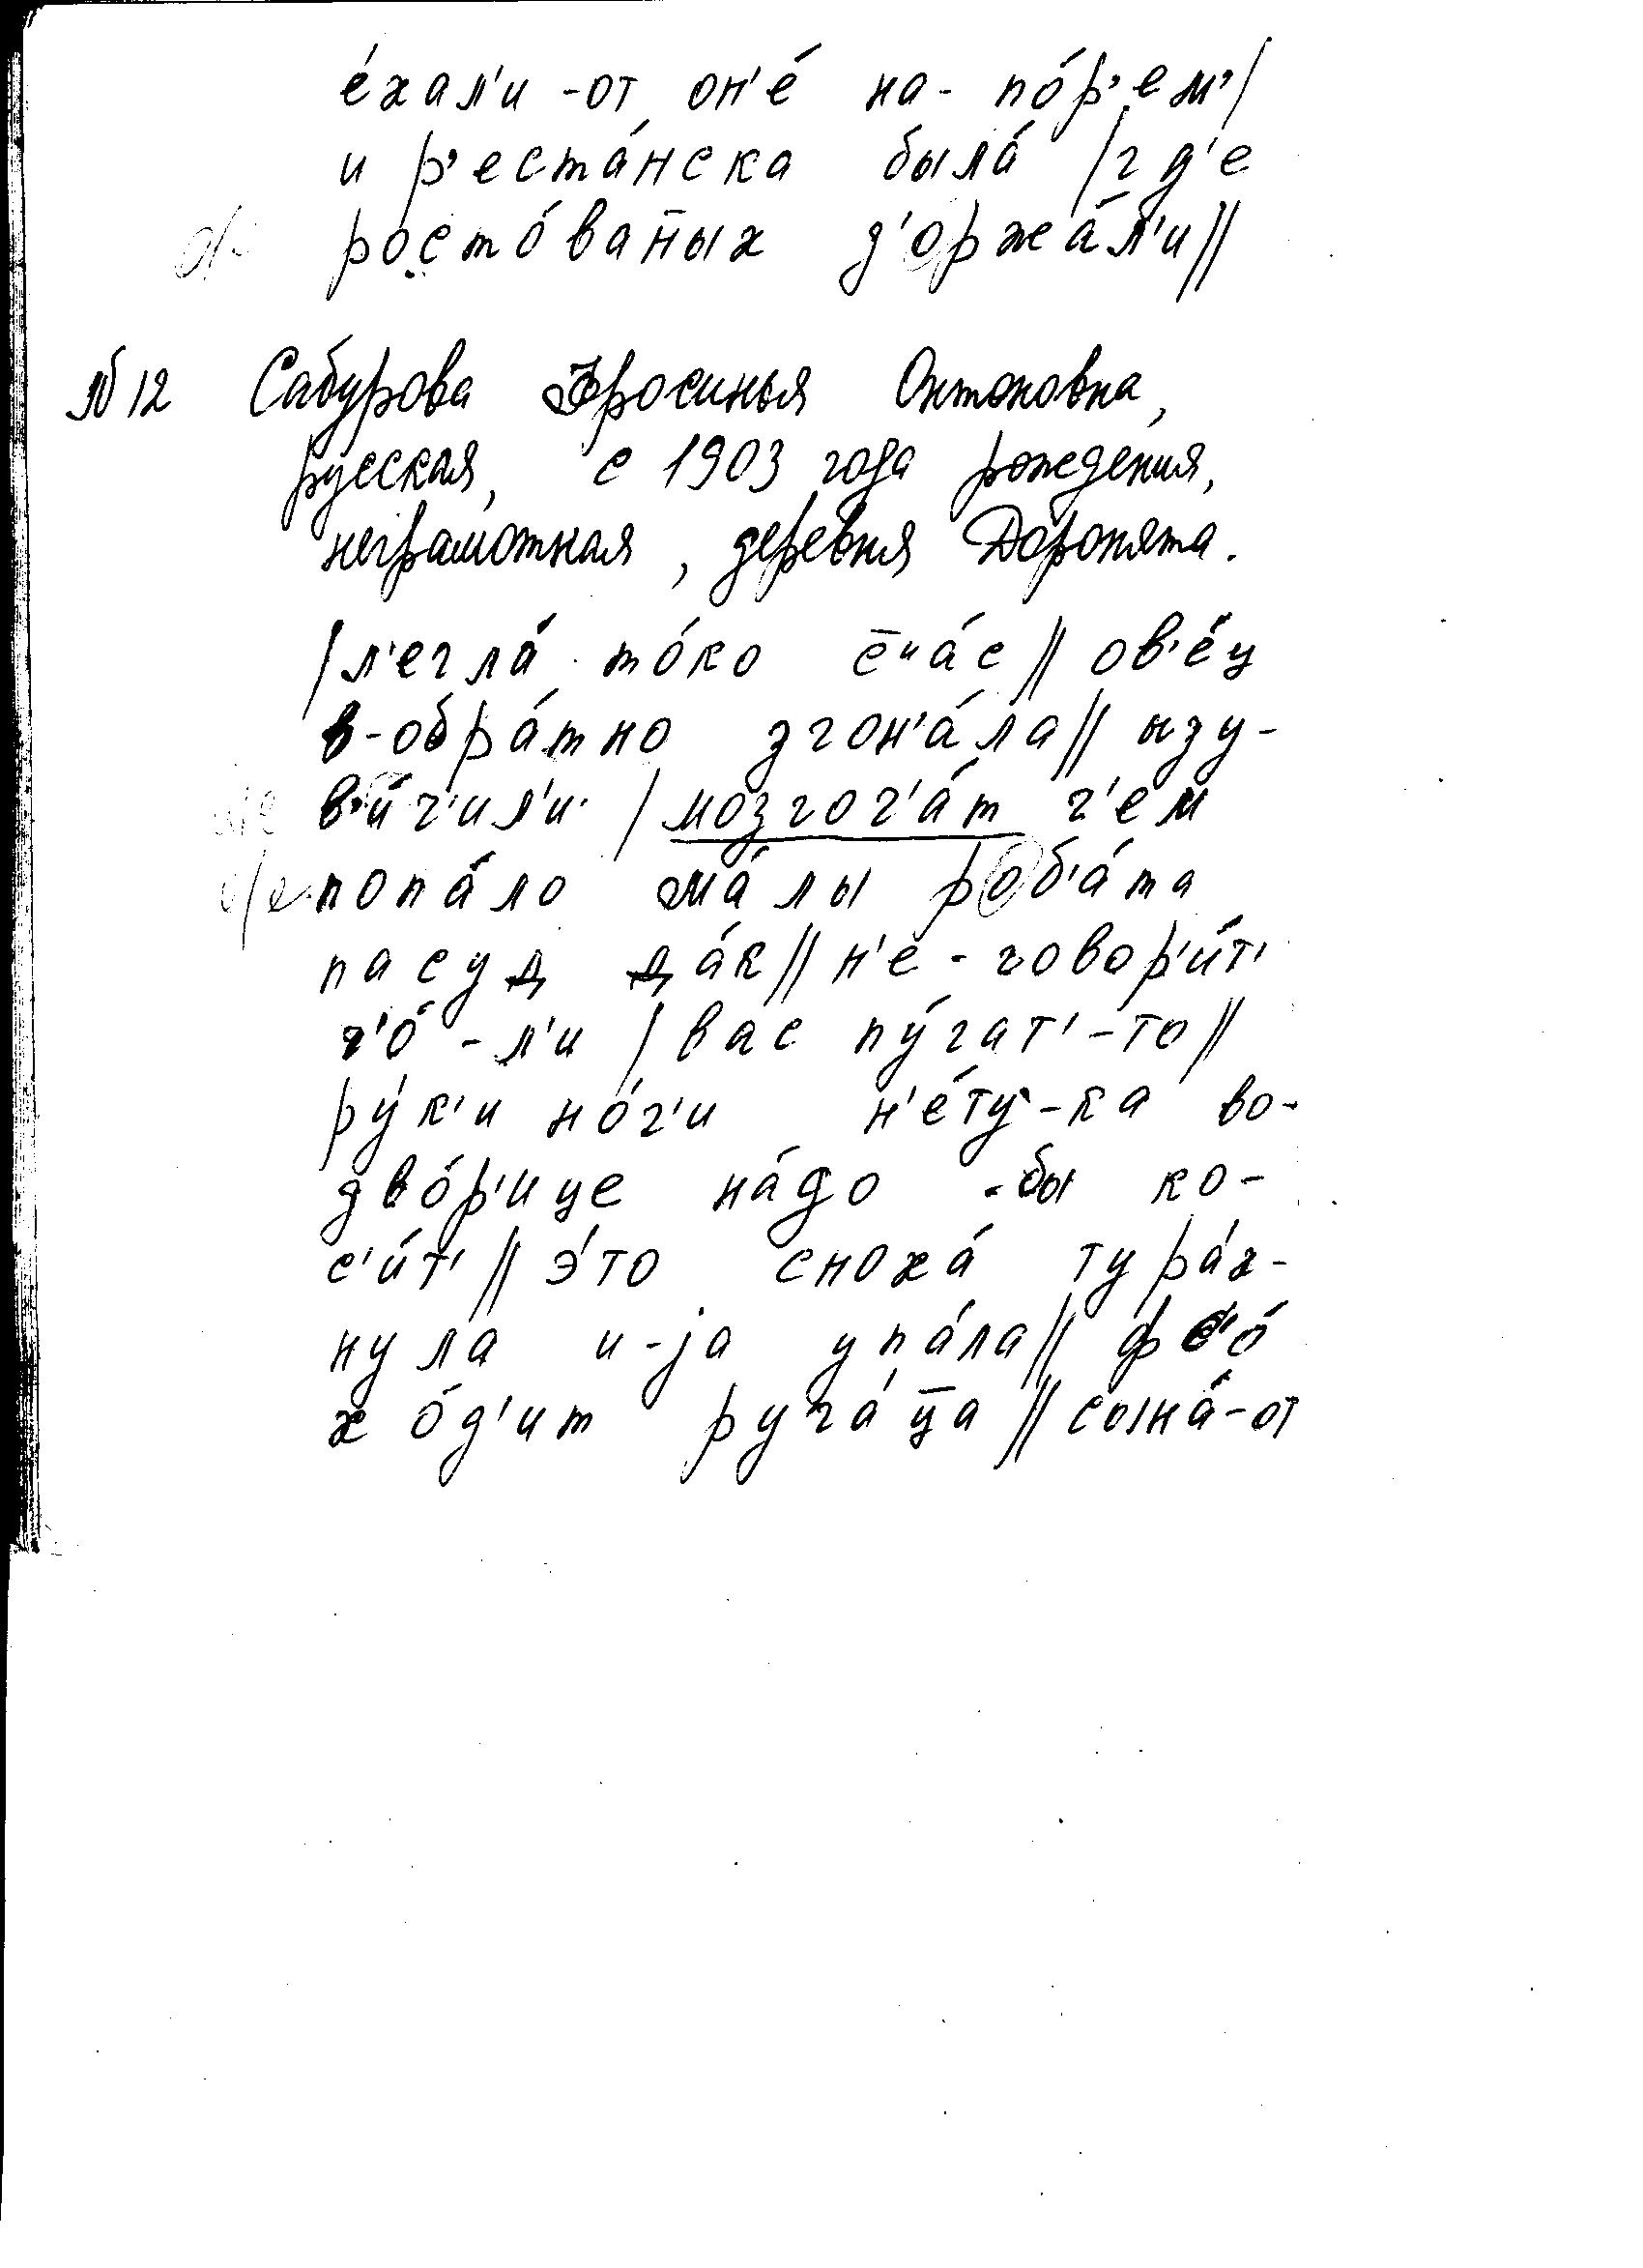 е́хал'и -от он'е́ на- по́р'ем'/
и р'еста́нска была́ /гд'е
росто́ван̄ых д'оржа́л'и//
№12 Сабурова Фросинья Онтоновна,
русская, с 1903 года рождения,
неграмотная, деревня Доронята.
/л'егла́ то́ко с̄ча́с// ов'е́ц
в-обра́тно згон'а́ла// изу-
в'и́ч'ил'и /мозгоч'а́т ч'ем
попа́ло ма́лы роб'а́та
пасуд да́к// н'е-говор'и́т'
ч'о́-л'и /вас пу́гат'-то//
ру́к'и но́г'и н'е́ту-ка во-
дво́р'ице на́до -бы ко-
с'и́т'// э́то сноха́ тура́х-
нула и-jа упа́ла// фс'о́
хо́д'ит руга́ц̄а// сына́-от